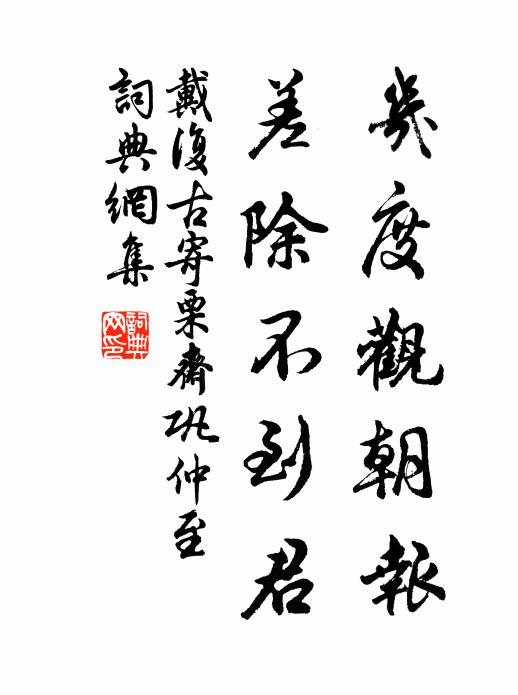 幾度觀朝報
差除不到君
戴復古寄栗齋巩仲至
詞典網集
詞典
网印